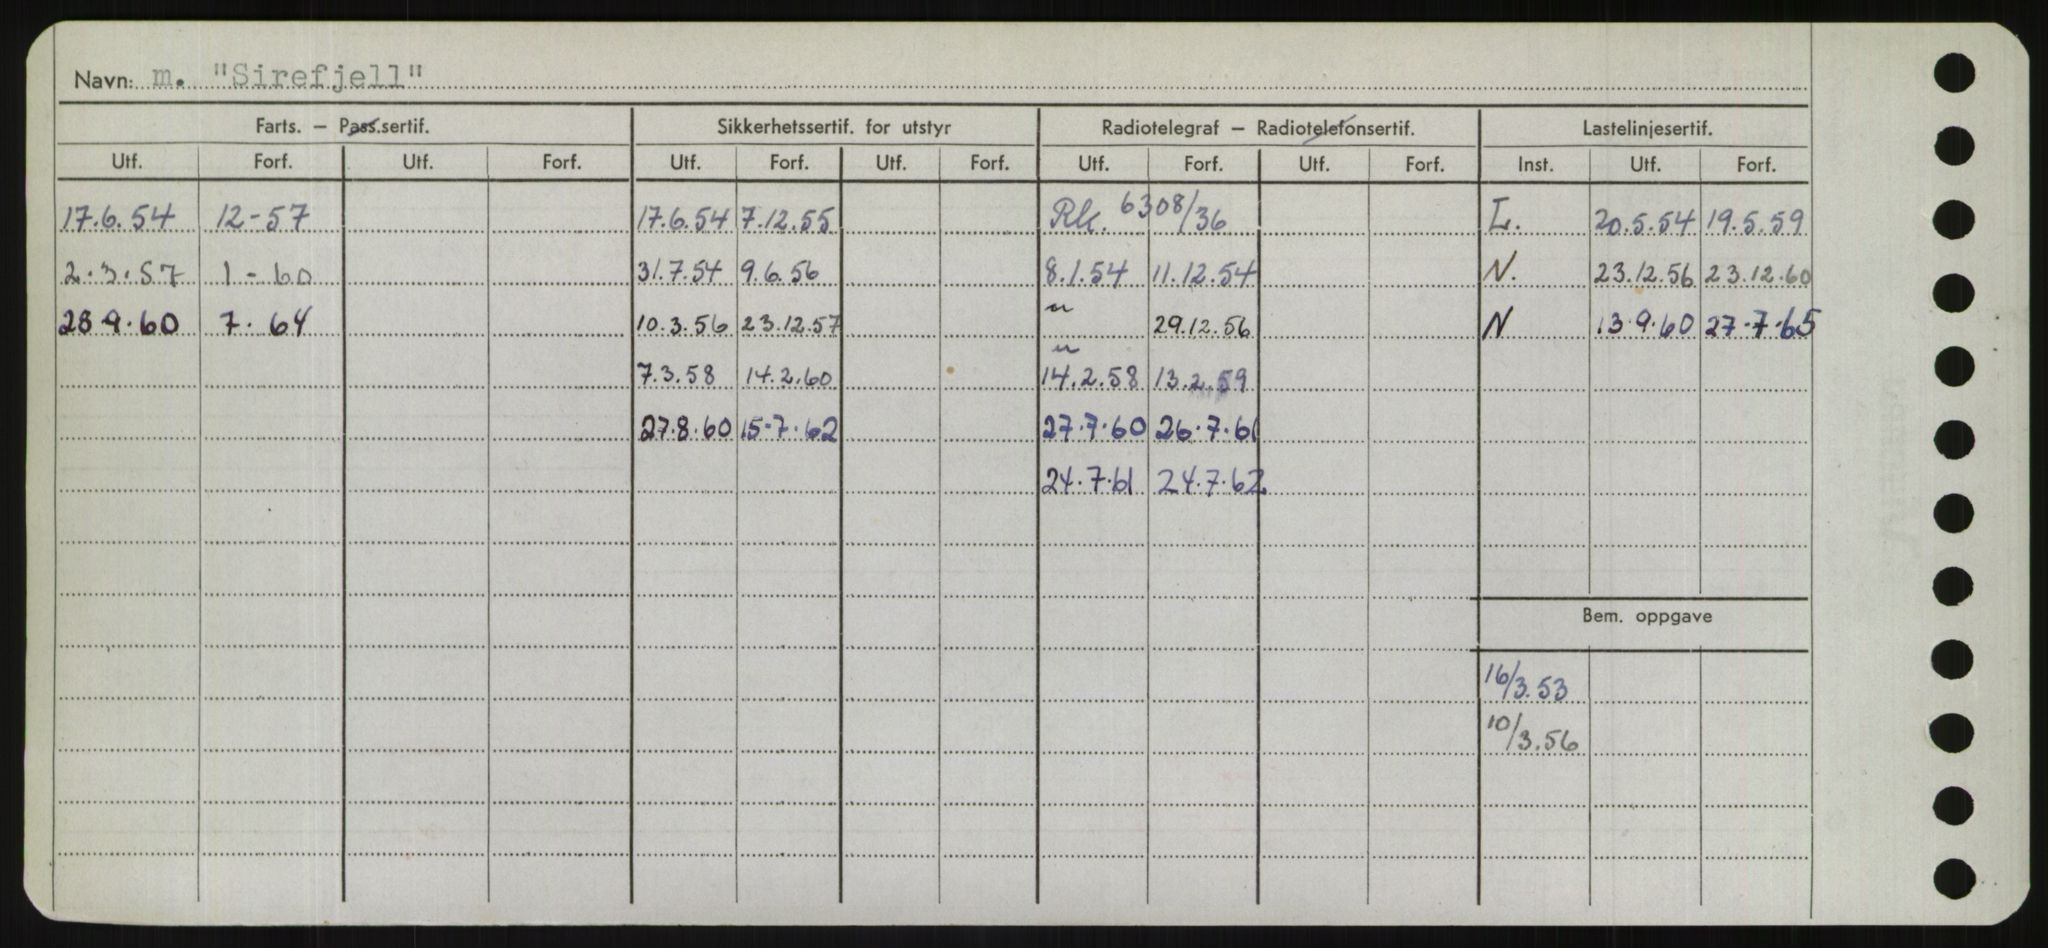 Navn: m. "Sirefjell"
Farts. – Pass.sertif. Sikkerhetssertif. for utstyr Radiotelegraf – Radiotelefonsertif. Lastelinjesertif.
Utf. Forf. Utf. Forf. Utf. Forf. Utf. Forf. Utf. Forf. Utf. Forf. Inst. Utf. Forf.
17.6.54 12-57 17.6.54 7.12.55 Rk. 6308/36 L. 20.5.54 19.5.59
2.3.57 1-60 31.7.54 9.6.56 8.1.54 11.12.54 N. 23.12.56 23.12.60
28.9.60 7.64 10.3.56 23.12.57 29.12.56 N 13.9.60 27.7.65
7.3.58 14.2.60 14.2.58 13.2.59
27.8.60 15-7.62 27.7.60 26.7.61
24.7.61 24.7.62
Bem. oppgave
16/3.53
10/3.56